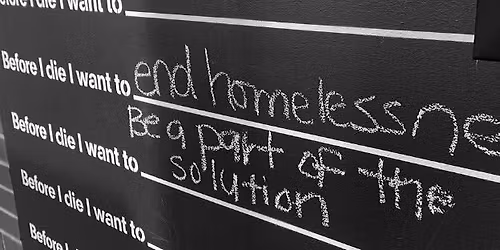 Before I die I want to
Before I die I want to end homelessne
Before I die I want to Be a part of the
solution
Before I die I want to
Before I die I want to